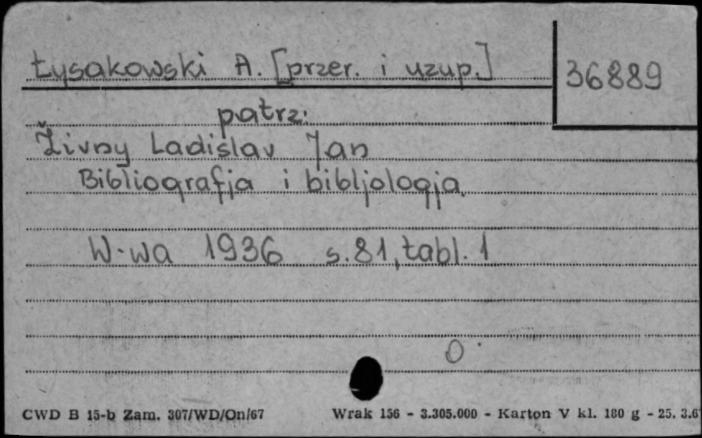 Łysakowski A. [przer. i uzup.]
36889
patrz:
Živny Ladislav Jan
Bibliografja i bibljologja.
W-wa 1936 s.81, tabl. 1
O
CWD B 15-b Zam. 307/WD/On/67 Wrak 156 - 3.305.000 - Karton V kl. 180 g - 25. 3.6